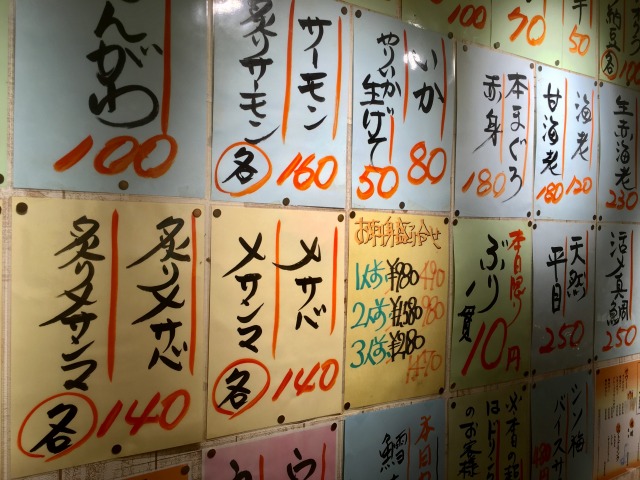 んがわ
100
サーモン
炙りサーモン
各 160
いか
80
やりいか
生げそ
50
本まぐろ
赤身
180
海老
120
甘海老
180
生赤海老
230
100
70
50
各 100
炙り〆サバ
炙り〆サンマ
各 140
〆サバ
〆サンマ
各 140
お刺身盛り合せ
1人前 ¥980
2人前 ¥1,580 980
3人前
本日限り
ぶり
一貫
10円
天然
平目
250
活〆真鯛
250
鱈
本日
のお客様
シソ梅